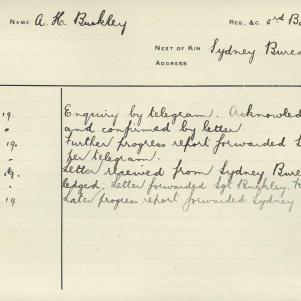 NAME A. H. Buckley REG. &C. 3rd Ba
NEXT OF KIN Sydney Bure
ADDRESS
19. Enquiry by telegram. Acknowled
" and confirmed by letter.
19. Further progress report forwarded S
" per telegram.
19. Letter received from Sydney Bure
" ledged. Letter forwarded Sgt Buckley.
19 Later progress report forwarded Sydney